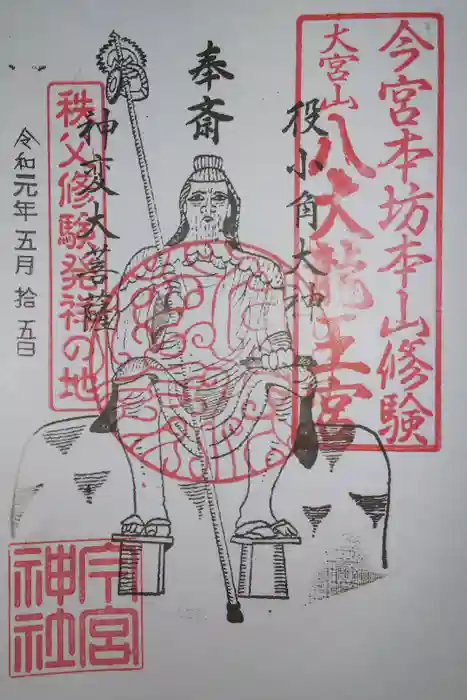 今宮本坊本山修験
大宮山
八大龍王宮
役小角大神
奉斎
神変大菩薩
秩父修験発祥の地
令和元年五月拾五日
今宮
神社